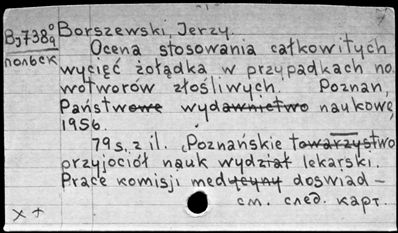 Вј738⁰ Borszewski, Jerzy.
польск Ocena stosowania całkowitych
wycięć żołądka w przypadkach no
wotworów złośliwych. Poznań,
Państwowe wydawnictwo naukowe,
1956.
79 s. z il. (Poznańskie towarzystwo
przyjociół nauk wydział lekarski.
Prace komisji medycyny doswiad-
см. след. карт.
× +